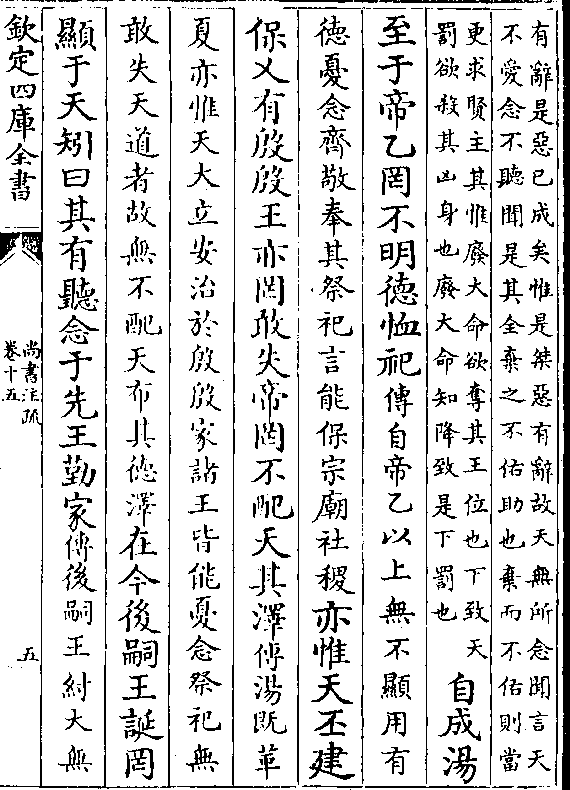 有辭是惡已成矣惟是桀惡有辭故天無所念聞言天
不愛念不聽聞是其全棄之不佑助也棄而不佑則當
更求賢主其惟廢大命欲奪其王位也下致天
罰欲殺其凶身也廢大命知降致是下罰也
自成湯
至于帝乙罔不明德恤祀傳自帝乙以上無不顯用有
德憂念齊敬奉其祭祀言能保宗廟社稷亦惟天丕建
保乂有殷殷王亦罔敢失帝罔不配天其澤傳湯既革
夏亦惟天大立安治於殷殷家諸王皆能憂念祭祀無
敢失天道者故無不配天布其德澤在今後嗣王誕罔
顯于天矧曰其有聽念于先王勤家傳後嗣王紂大無
欽定四庫全書
尚書注疏
卷十五
五